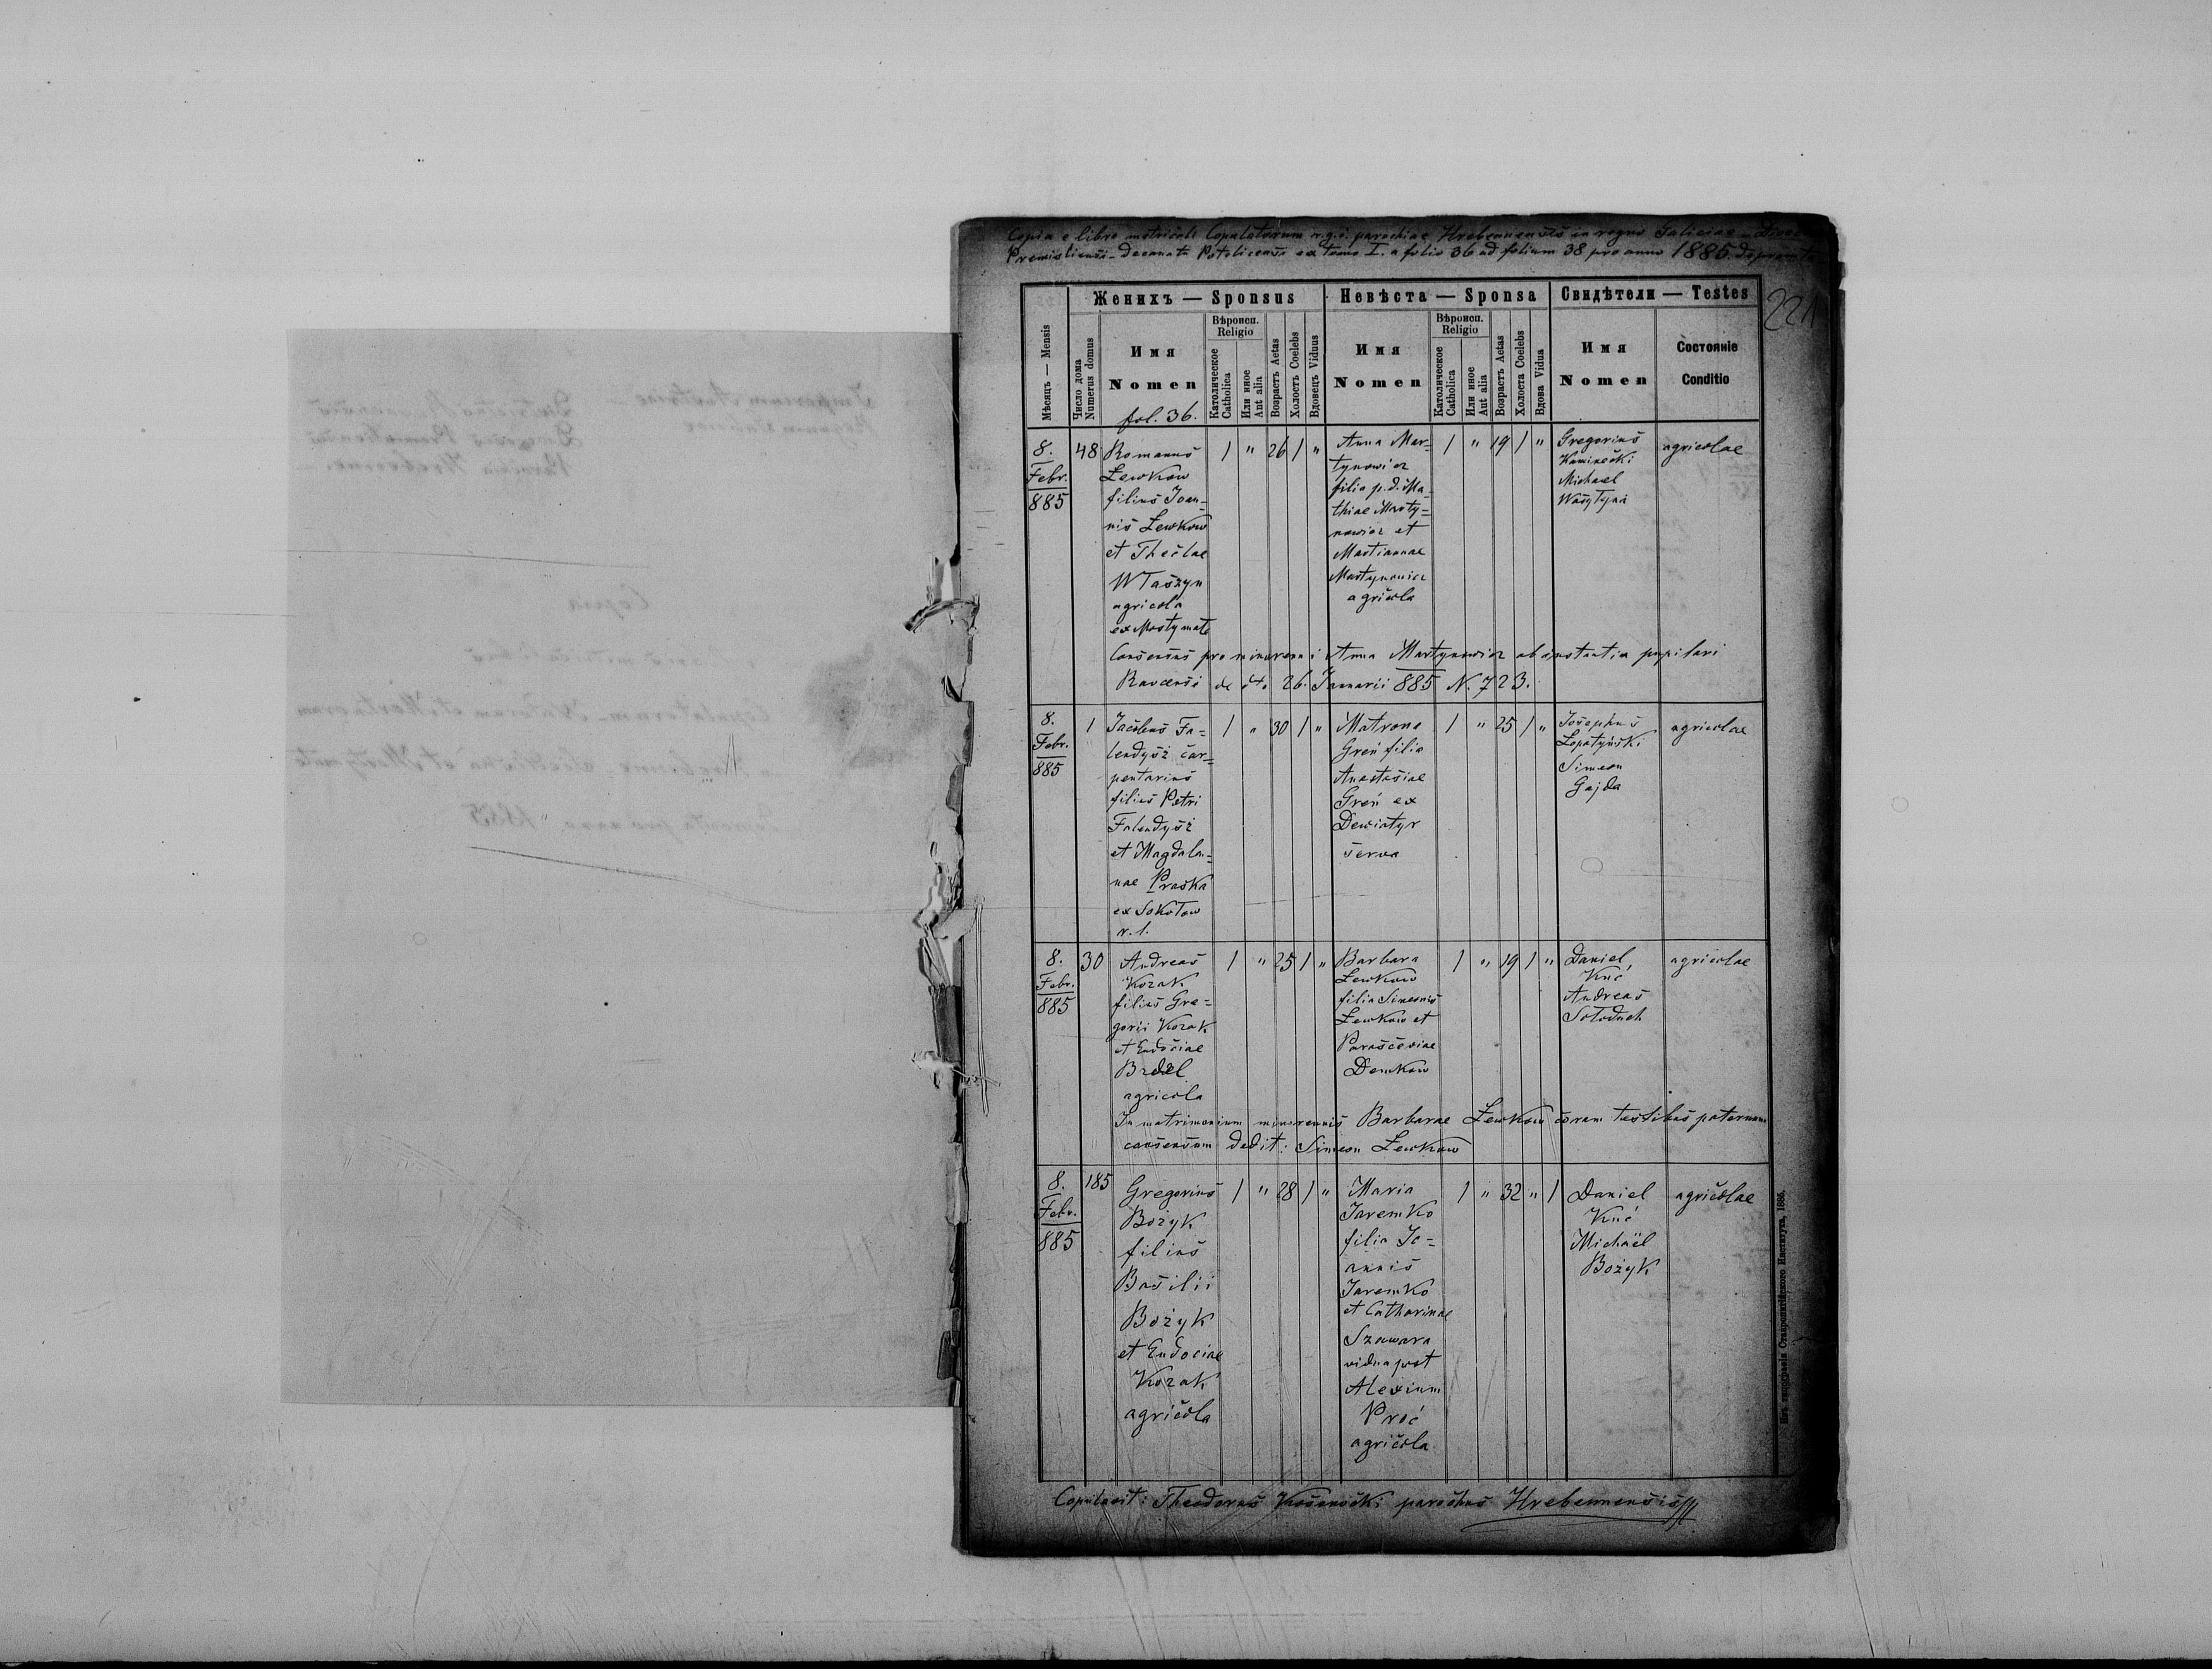 Copia e libro metricali Copulatorum r.g.c. parochiae Hrebennensis in regno Galiciae - Dioec
Premisliensi - Decanatu Potelicensi ex tomo I. a folio 36 ad folium 38 pro anno 1885 deprompta
221
Женихъ — Sponsus
Невѣста — Sponsa
Свидѣтели — Testes
Мѣсяцъ — Mensis
Число дома
Numerus domus
Имя
Nomen
fol. 36.
Вѣроисп.
Religio
Католическое
Catholica
Или иное
Aut alia
Возрастъ Aetas
Холостъ Coelebs
Вдовецъ Viduus
Имя
Nomen
Вѣроисп.
Religio
Католическое
Catholica
Или иное
Aut alia
Возрастъ Aetas
Холоста Coelebs
Вдова Vidua
Имя
Nomen
Состояніе
Conditio
8.
Febr.
885
48
Romanus
Lewkow
filius Joan-
nis Lewkow
et Theclae
Właszyn
agricola
ex Mosty małe
1 " 26 1 "
Anna Mar-
tynowicz
filia p.d. Ma-
thiae Marty-
nowicz et
Martiannae
Martynowicz
agricola
1 " 19 1 "
Gregorius
Kaminecki
Michael
agricolae
Consensus pro minorenni Anna Martynowicz ab instantia pupilari
Ravensi de dto 26. Januarii 885 N. 723.
8.
Febr.
885
1
Jacobus Fa-
lendysz car-
pentarius
filius Petri
Falendysz
et Magdale-
nae Praska
ex Sokołow
N. 1.
1 " 30 1 "
Matrona
Greń filia
Anastasiae
Greń ex
Dewiatyr
serva
1 " 25 1 "
Josephus
Łopatyński
Simeon
Gajda
agricolae
8.
Febr.
885
30
Andreas
Kozak
filius Gre-
gorii Kozak
et Eudociae
agricola
1 " 25 1 "
Barbara
Lewkow
filia Simeonis
Lewkow et
Parasceviae
Demkow
1 " 19 1 "
Daniel
Kuć
Andreas
Sołoduch
agricolae
In matrimonium minorennis Barbarae Lewkow coram testibus paternum
consensum dedit: Simeon Lewkow
8.
Febr.
885
185
Gregorius
Bożyk
filius
Basilii
Bożyk
et Eudociae
Kozak
agricola
1 " 28 1 "
Maria
Jaremko
filia Jo-
annis
Jaremko
et Catharinae
Szawara
vidua post
Alexium
Proć
agricola
1 " 32 " 1
Daniel
Kuć
Michaël
Bożyk
agricolae
Copulavit: Theodorus parochus Hrebennensis
Изъ типографіи Ставропигійского Института, 1886.